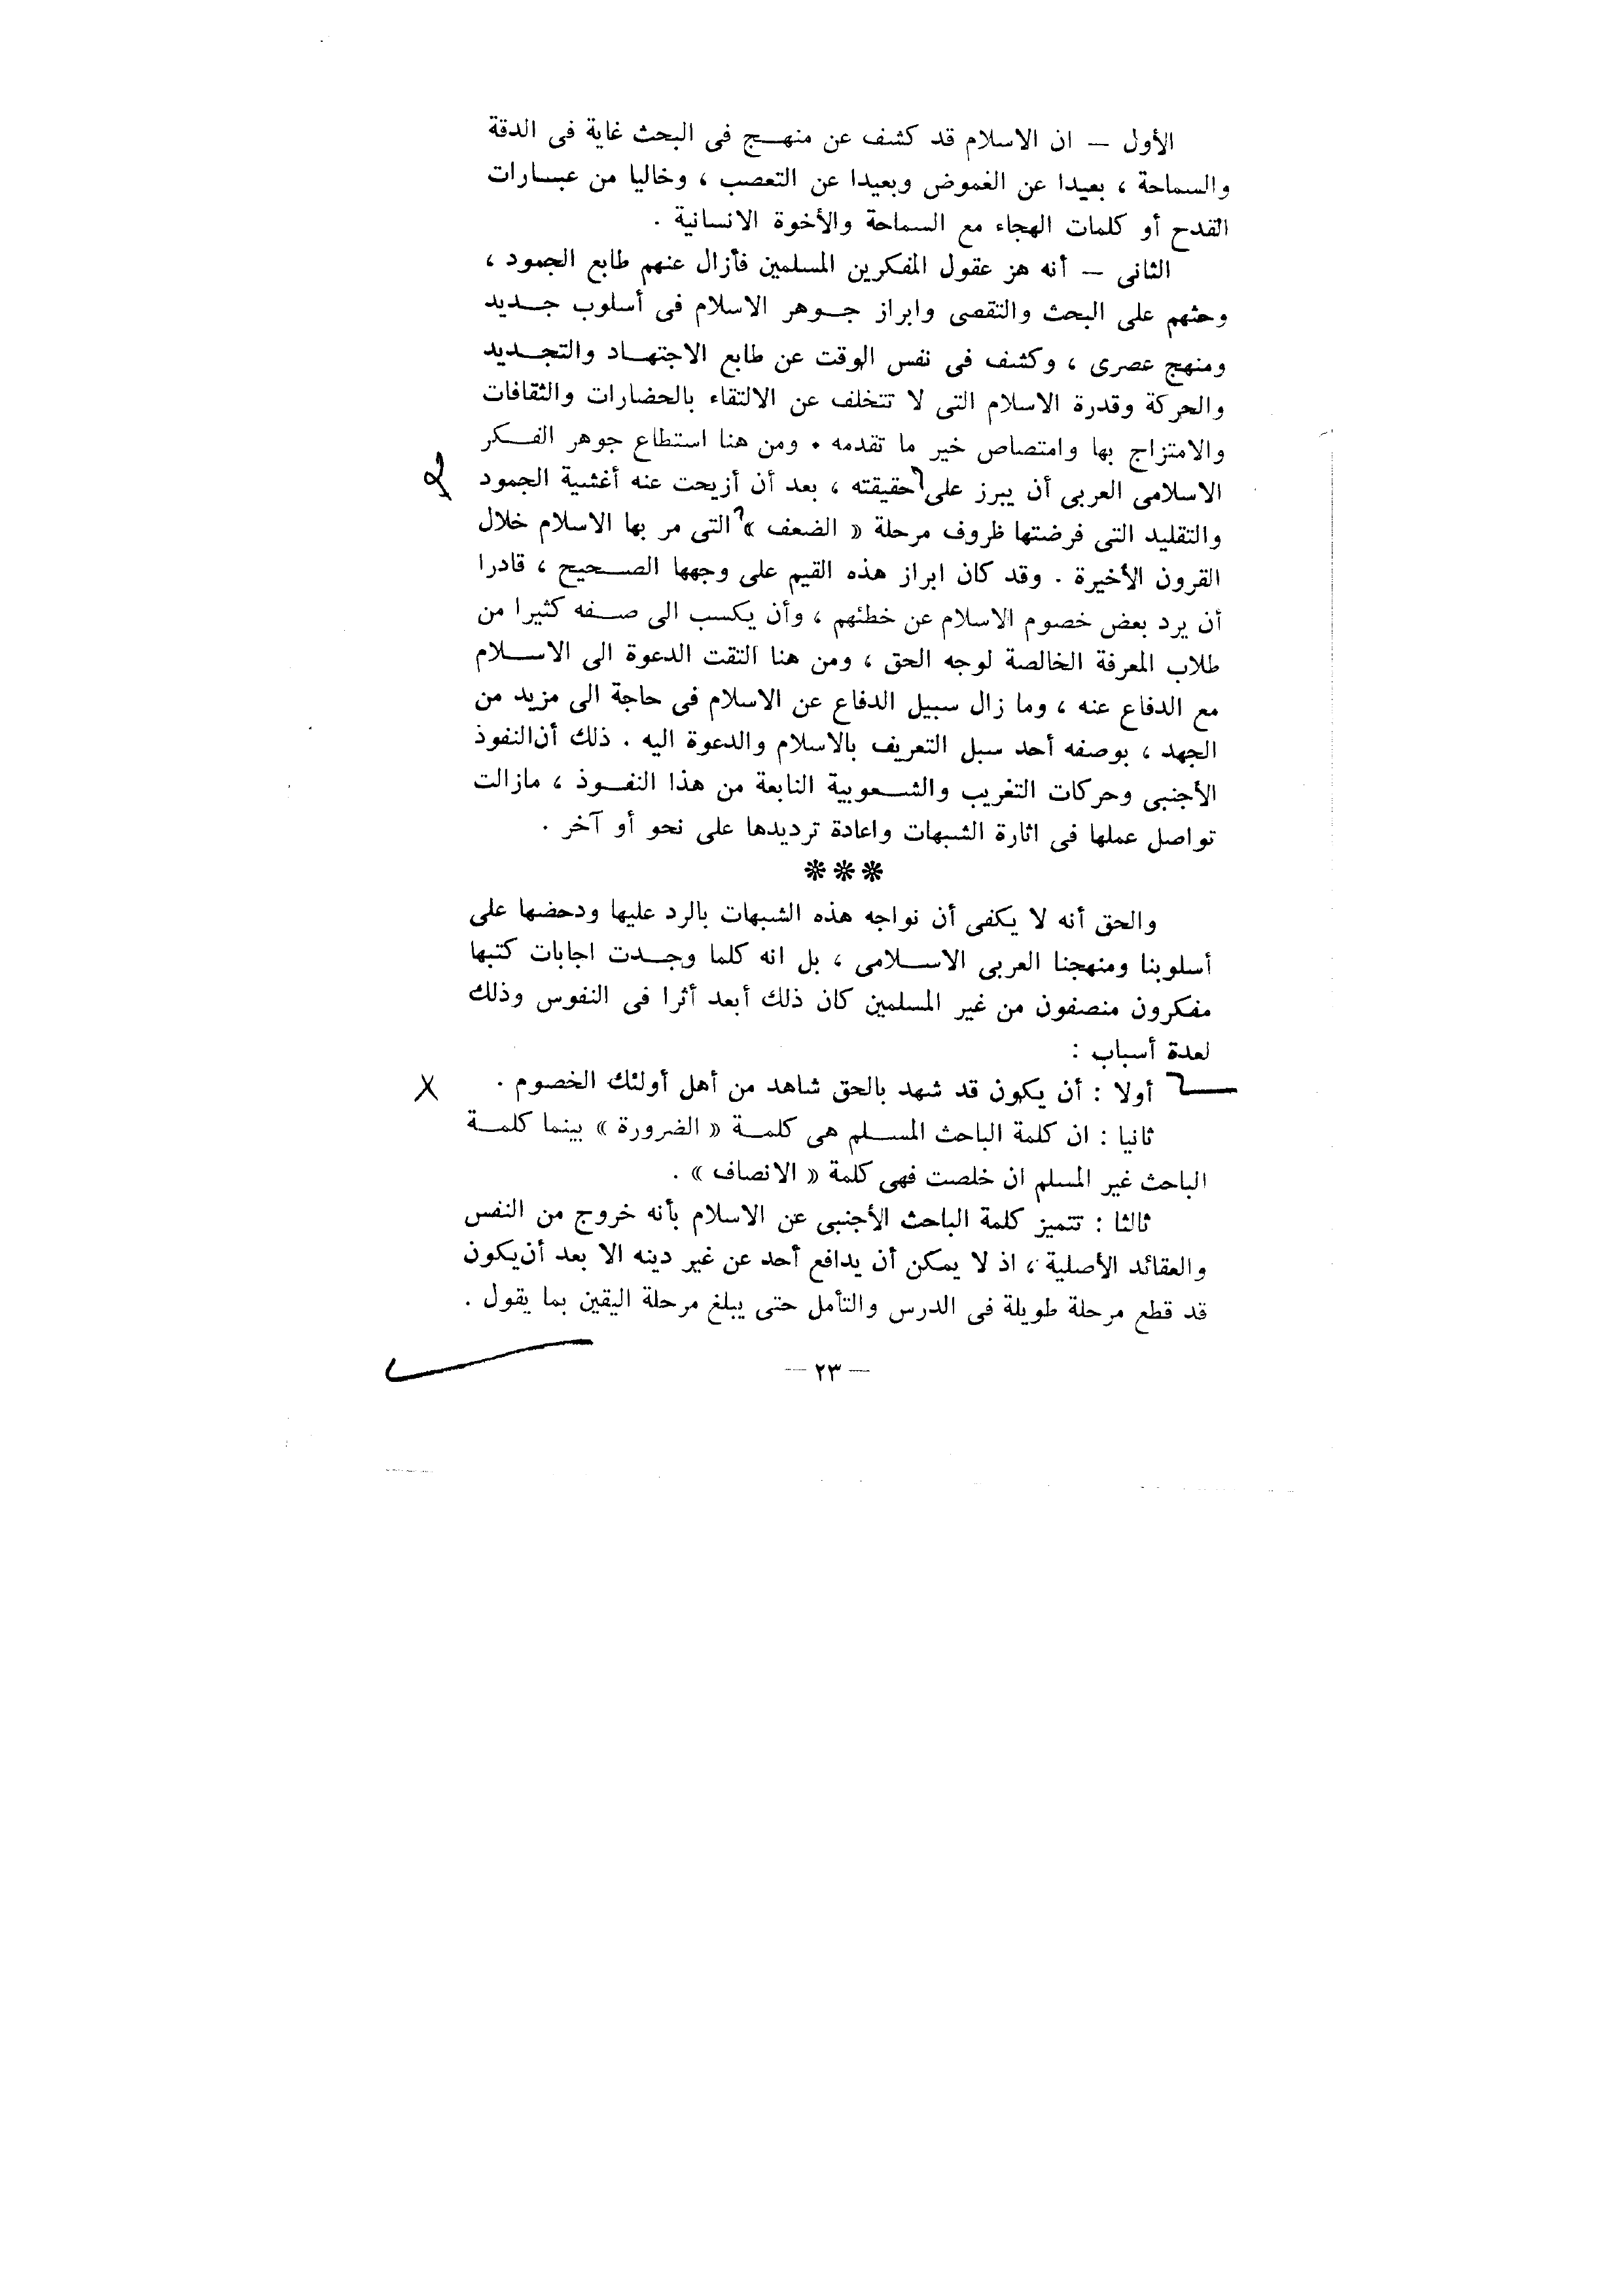 الأول — ان الاسلام قد كشف عن منهـــج فى البحث غاية فى الدقة
والسماحة ، بعيدا عن الغموض وبعيدا عن التعصب ، وخاليا من عبـــارات
القدح أو كلمات الهجاء مع السماحة والأخوة الانسانية .
الثانى — أنه هز عقول المفكرين المسلمين فأزال عنهم طابع الجمود ،
وحثهم على البحث والتقصى وابراز جـــوهر الاسلام فى أسلوب جـــديد
ومنهج عصرى ، وكشف فى نفس الوقت عن طابع الاجتهـــاد والتجـــديد
والحركة وقدرة الاسلام التى لا تتخلف عن الالتقاء بالحضارات والثقافات
والامتزاج بها وامتصاص خير ما تقدمه . ومن هنا استطاع جوهر الفـــكر
الاسلامى العربى أن يبرز على حقيقته ، بعد أن أزيحت عنه أغشية الجمود
والتقليد التى فرضتها ظروف مرحلة « الضعف » التى مر بها الاسلام خلال
القرون الأخيرة . وقد كان ابراز هذه القيم على وجهها الصـــحيح ، قادرا
أن يرد بعض خصوم الاسلام عن خطئهم ، وأن يكسب الى صـــفه كثيرا من
طلاب المعرفة الخالصة لوجه الحق ، ومن هنا التقت الدعوة الى الاســـلام
مع الدفاع عنه ، وما زال سبيل الدفاع عن الاسلام فى حاجة الى مزيد من
الجهد ، بوصفه أحد سبل التعريف بالاسلام والدعوة اليه . ذلك أن النفوذ
الأجنبى وحركات التغريب والشـــعوبية النابعة من هذا النفـــوذ ، مازالت
تواصل عملها فى اثارة الشبهات واعادة ترديدها على نحو أو آخر .
***
والحق أنه لا يكفى أن نواجه هذه الشبهات بالرد عليها ودحضها على
أسلوبنا ومنهجنا العربى الاســـلامى ، بل انه كلما وجـــدت اجابات كتبها
مفكرون منصفون من غير المسلمين كان ذلك أبعد أثرا فى النفوس وذلك
لعدة أسباب :
أولا : أن يكون قد شهد بالحق شاهد من أهل أولئك الخصوم .
ثانيا : ان كلمة الباحث المســـلم هى كلمـــة « الضرورة » بينما كلمـــة
الباحث غير المسلم ان خلصت فهى كلمة « الانصاف » .
ثالثا : تتميز كلمة الباحث الأجنبى عن الاسلام بأنه خروج من النفس
والعقائد الأصلية ، اذ لا يمكن أن يدافع أحد عن غير دينه الا بعد أن يكون
قد قطع مرحلة طويلة فى الدرس والتأمل حتى يبلغ مرحلة اليقين بما يقول .
— ٢٣ —